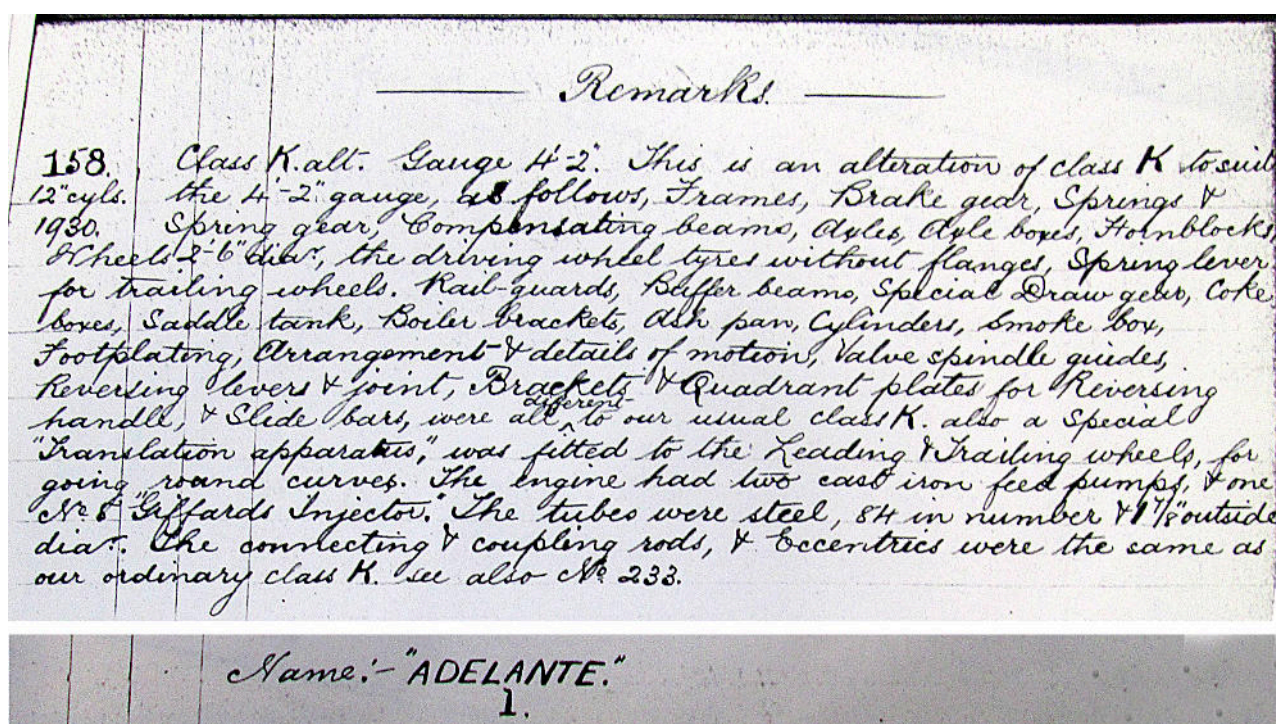 Remarks.
158. Class K. alt. Gauge 4'-2". This is an alteration of class K to suit
12" cyls. the 4'-2" gauge, as follows, Frames, Brake gear, Springs &
1930. Spring gear, Compensating beams, Axles, Axle boxes, Hornblocks,
Wheels 2'-6" diar., the driving wheel tyres without flanges, Spring lever
for trailing wheels. Rail-guards, Buffer beams, Special Draw gear, Coke
boxes, Saddle tank, Boiler brackets, Ash pan, Cylinders, Smoke box,
Footplating, Arrangement & details of motion, Valve spindle guides,
Reversing levers & joint, Brackets & Quadrant plates for Reversing
handle, & Slide bars, were all different to our usual class K. also a Special
"Translation apparatus," was fitted to the Leading & Trailing wheels, for
going round curves. The engine had two cast iron feed pumps, & one
No. "Giffards Injector." The tubes were steel, 84 in number & 1 7/8" outside
diar. The connecting & coupling rods, & Eccentrics were the same as
our ordinary class K. see also No. 233.
Name:- "ADELANTE."
1.